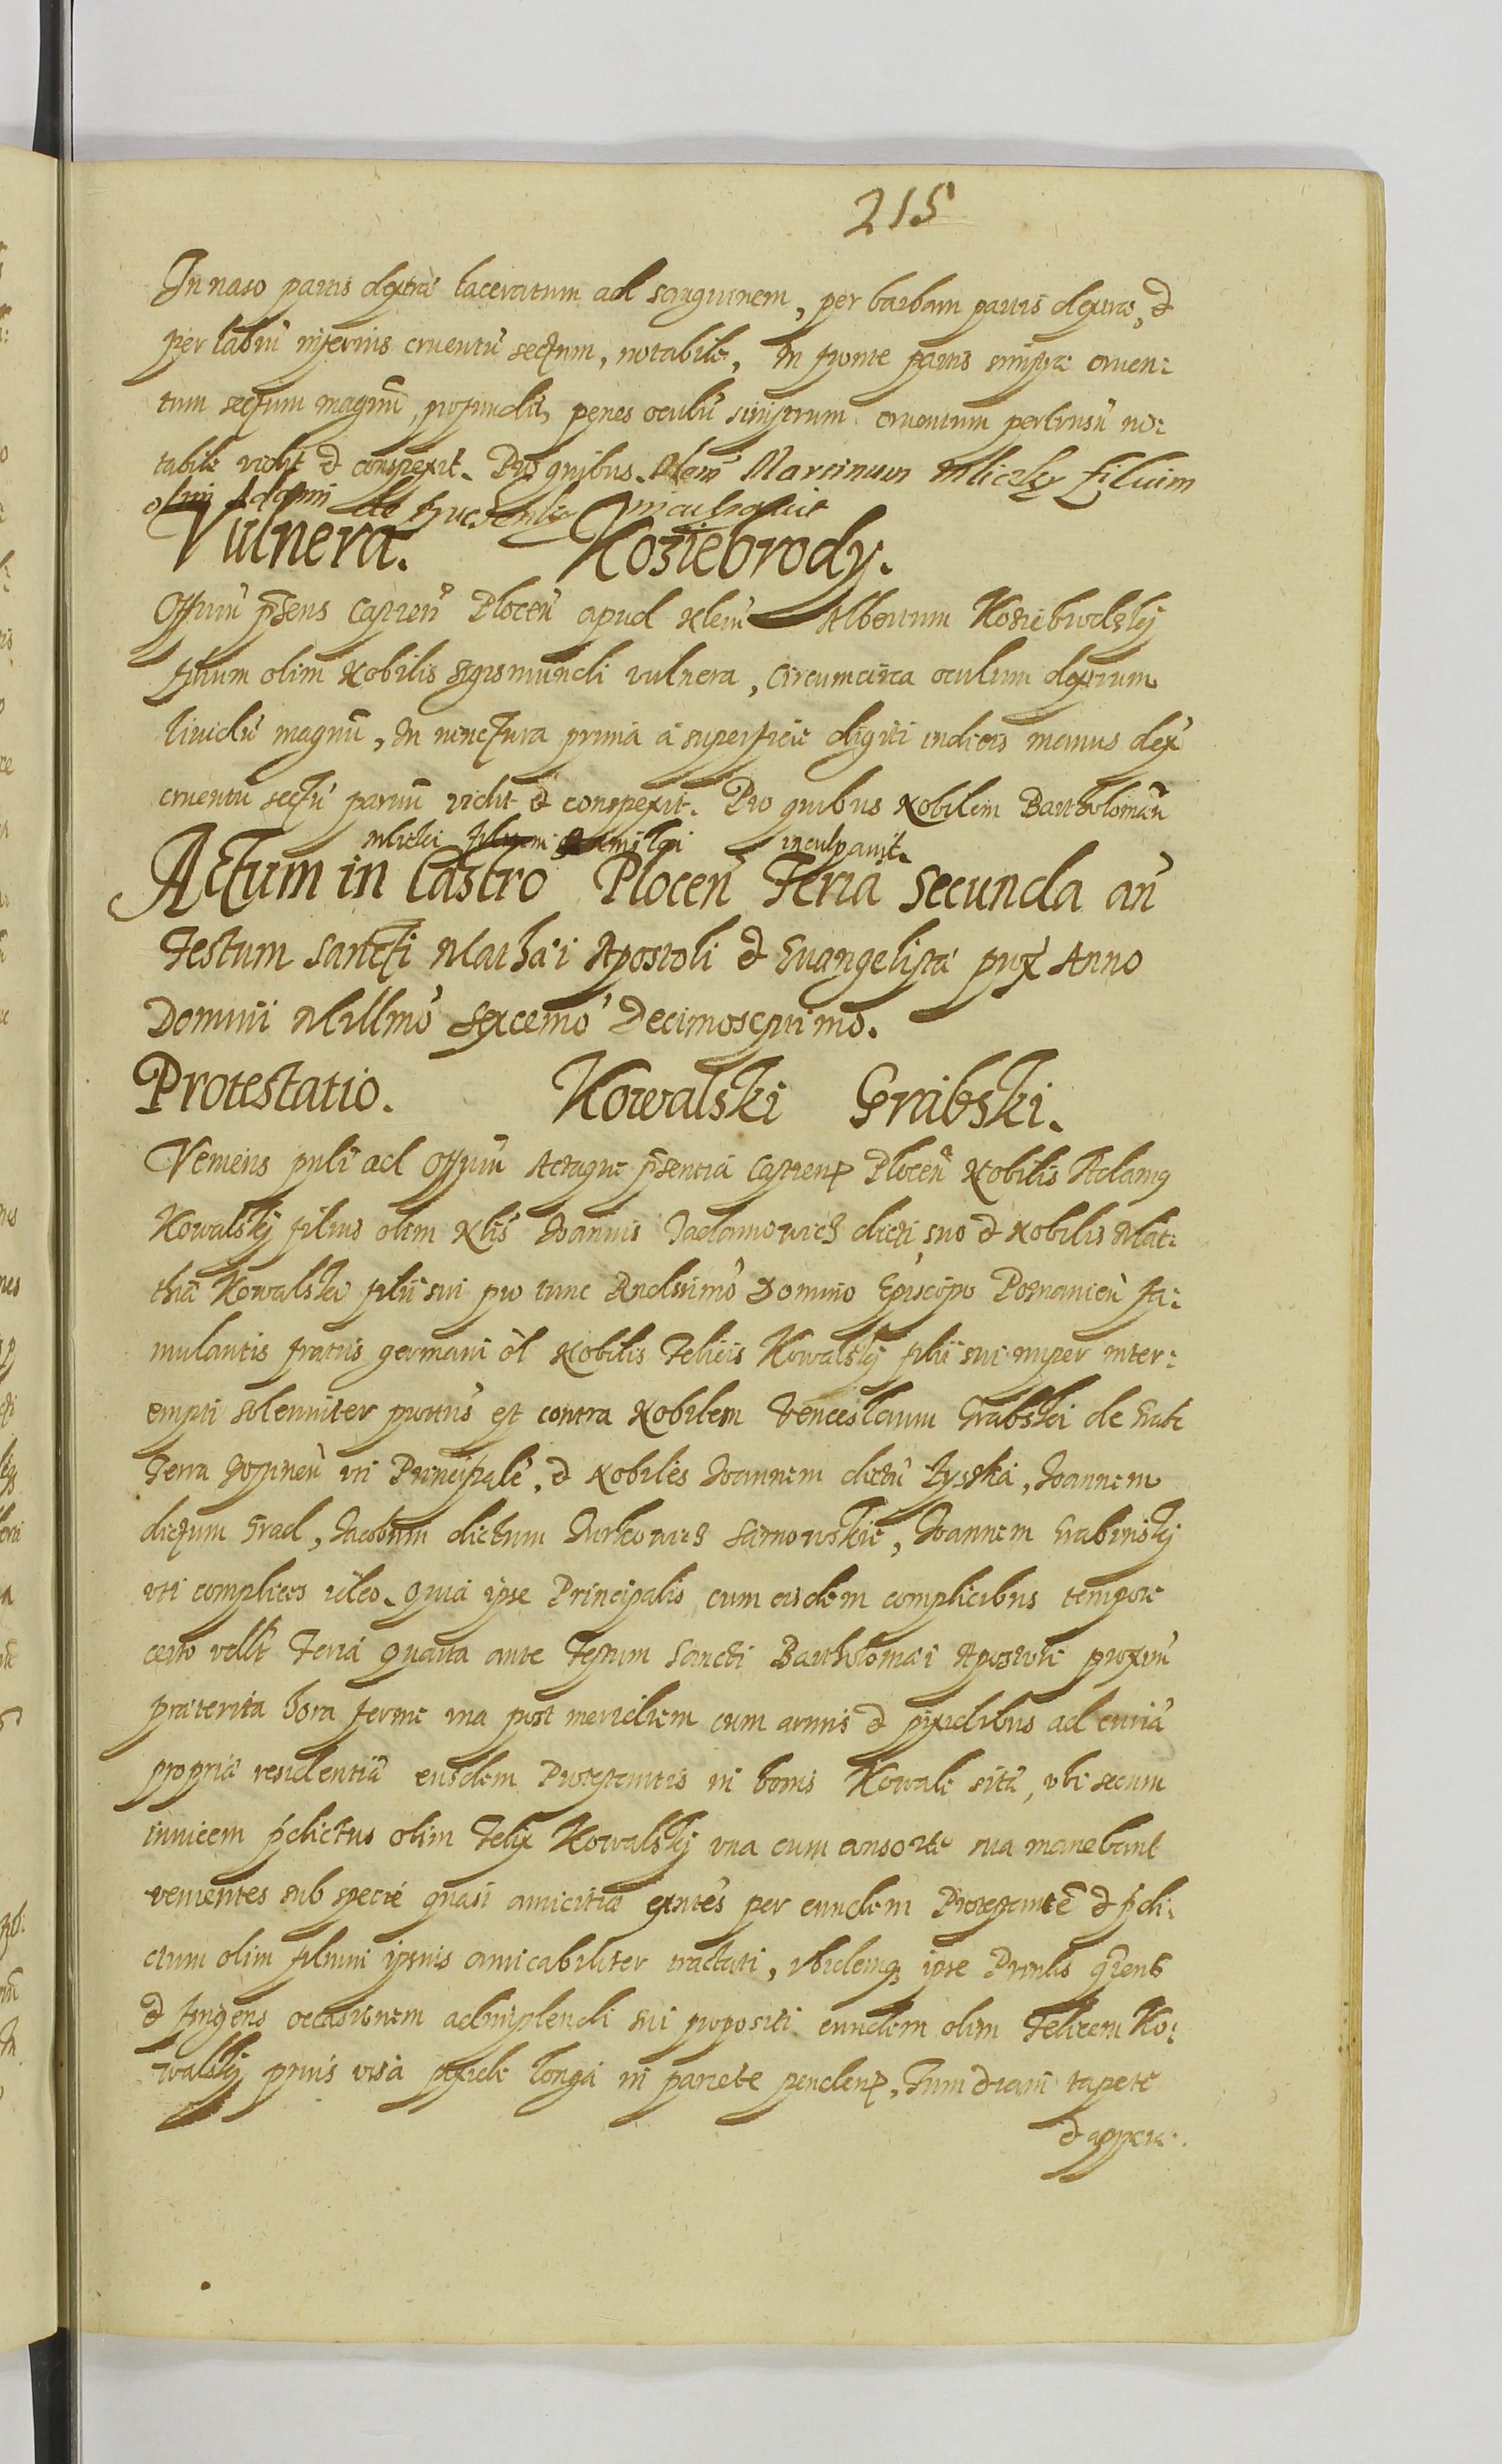 215
In naso partis dextrae laceratum ad sanguinem, per barbam partis dextrae, &
per labiū inferius cruentū sectum, notabile, In fronte partis sinistrae cruen:
tum sectum magnū, profundū, penes oculū sinistrum cruentum pertusū no:
tabile vidit & conspexit. Pro quibus. Martinum Mliczky Filium
olim Adami de inculpavit
Vulnera. Koziebrody.
Offiū p̄sens Castren̄ Plocen̄ apud Nlem̄ Albertum Koziebrodzkÿ
filium olim Nobilis Sigismundi vulnera, circumcirca oculum dextrum
lividū magnū, In iunctura prima a superficie digiti indicis manus dex̄
cruentū sectū parvū vidit & conspexit. Pro quibus Nobilem Bartholomæū
Mlicki filium inculpavit.
Actum in Castro Plocen̄ Feria secunda an̄
Festum Sancti Mathæi Apostoli & Evangelistæ prox̄ Anno
Domini Millmō Sexcemō Decimoseptimo.
Protestatio. Kowalski Grabski.
Veniens pnlī ad Offiū Actaque p̄sentia Castren̄ Plocen̄ Nobilis Adamꝰ
Kowalskÿ filius olim Nlis̄ Joannis Jadamowicz dicti suo & Nobilis Mat:
thiæ Kowalski filii sui pro tunc Rndssimō Domino Episcopo Posnanien̄ fa:
mulantis fratris germani ōl Nobilis Felicis Kowalskÿ filii sui nuper inter:
empti solenniter prottus̄ est contra Nobilem Venceslaum Grabski de Grab
Terra Dobrinen̄ uti Principalē, & Nobiles Joannem dictū Łysska, Joannem
dictum Grad, Jacobum dictum Jurkowicz Sarnowskie, Joannem Grabinskÿ
uti complices ideo. Quia ipse Principalis cum eisdem complicibus tempore
certo vellt̄ Feria Quarta ante Festum Sancti Bartholomæi Apostoli proxīm
præterita hora ferme una post meridiem cum armis & pixidibus ad curiā
propriā residentiā eiusdem Protestantis in bonis Kowale sitā, ubi secum
invicem p̄dictus olim Felix Kowalskÿ una cum consorte sua manebant
venientes sub specie quasi amicitiæ extn̄tes per eundem Protestantē & p̄di:
ctum olim filium ipsius amicabiliter tractati, ibidemq̃ ipse Prinlis̄ q̄rens
& fingens occasionem adimplendi sui propositi eundem olim Felicem Ko:
walskÿ prius visa pixide longa in pariete penden̄, Tum etiam tapete
& appen: